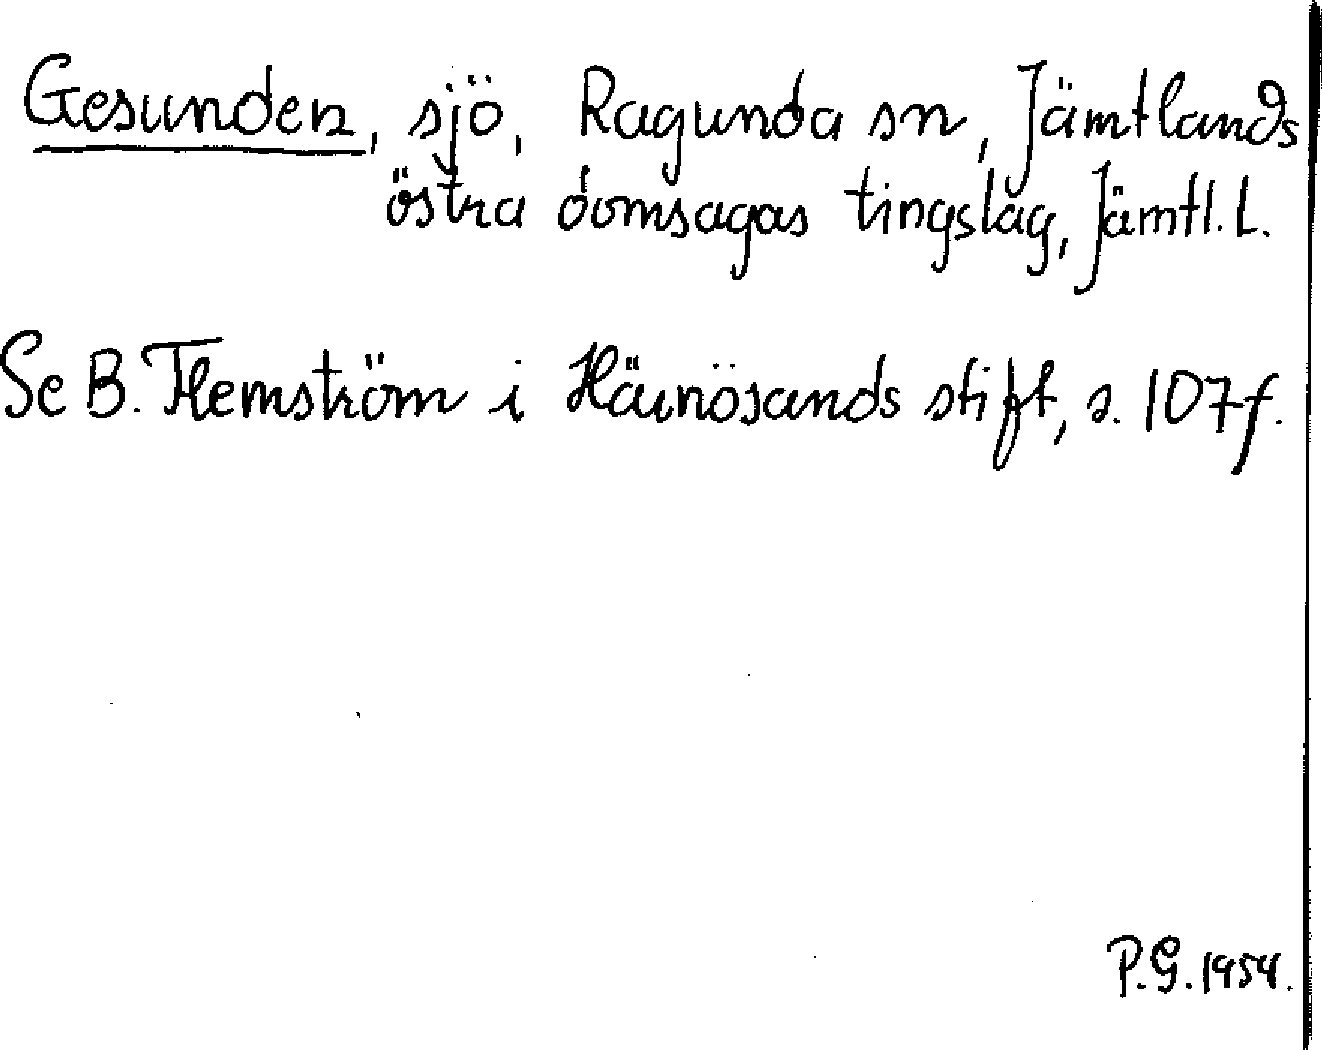 Gesunden, sjö, Ragunda sn, Jämtlands
östra domsagas tingslag, Jämtl. L.
Se B. Flemström i Härnösands stift, s. 107 f.
P.G. 1954.